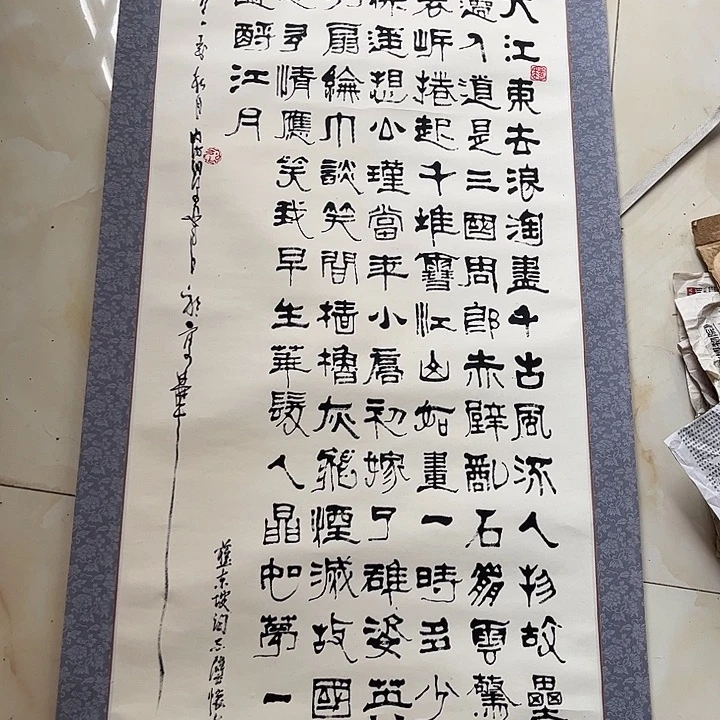 大江東去浪淘盡千古風流人物故壘
邊人道是三國周郎赤壁亂石崩雲驚
裂岸捲起千堆雪江山如畫一時多少
傑遙想公瑾當年小喬初嫁了雄姿英
扇綸巾談笑間檣櫓灰飛煙滅故國
多情應笑我早生華髮人如夢一
酹江月
蘇東坡詞赤壁懷